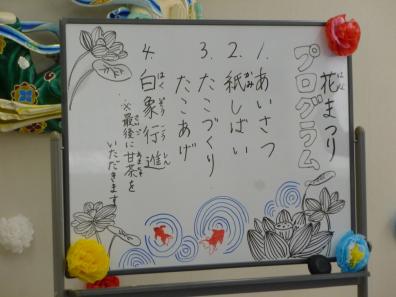 花まつり
プログラム
1. あいさつ
2. 紙しばい
3. たこづくり
たこあげ
4. 白象行進
※最後に甘茶を
いただきます